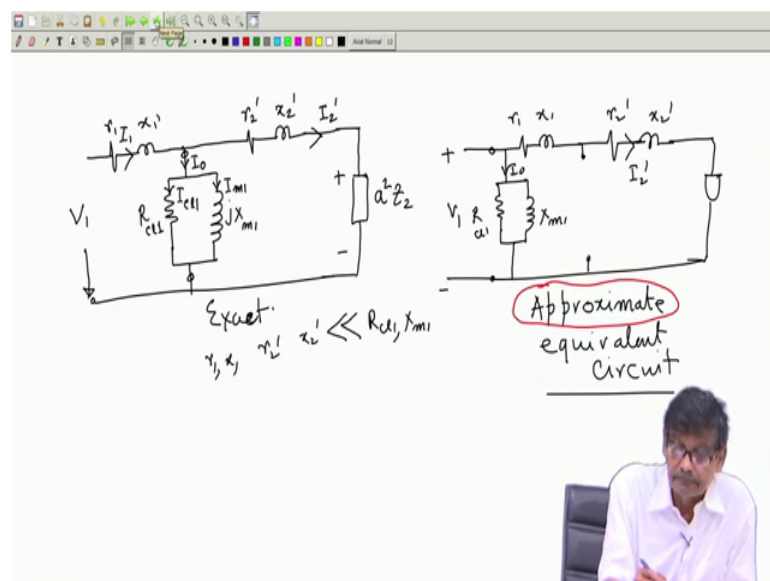 Next Page
Arial Normal 12
r1 I1 x1'
r2' x2' I2'
I0
V1
Rcl1 Icl1 Im1 jXm1
+
a²Z2
-
Exact.
r1, x1 r2' x2' << Rcl1, Xm1
r1 x1 r2' x2'
+
I0 I2'
V1 Rcl1 Xm1
-
Approximate
equivalent
circuit